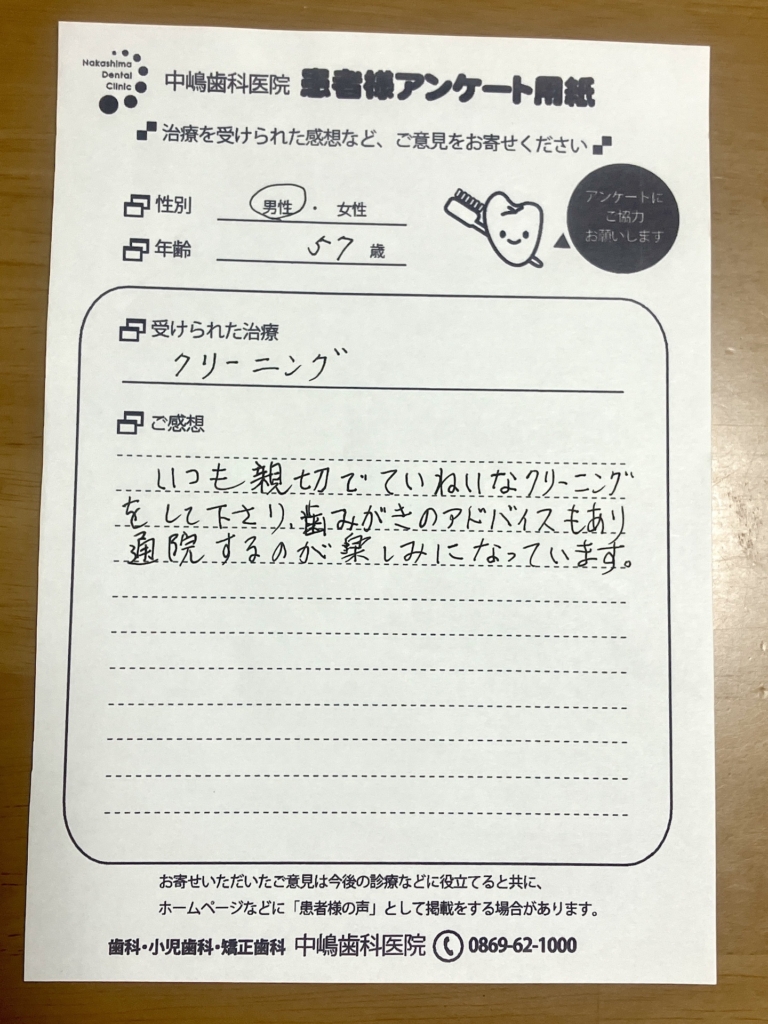 Nakashima
Dental
Clinic
中嶋歯科医院 患者様アンケート用紙
治療を受けられた感想など、ご意見をお寄せください
性別 男性 ・ 女性
年齢 57 歳
アンケートに
ご協力
お願いします
受けられた治療
クリーニング
ご感想
いつも親切でていねいなクリーニング
をして下さり、歯みがきのアドバイスもあり
通院するのが楽しみになっています。
お寄せいただいたご意見は今後の診療などに役立てると共に、
ホームページなどに「患者様の声」として掲載をする場合があります。
歯科・小児歯科・矯正歯科 中嶋歯科医院 0869-62-1000